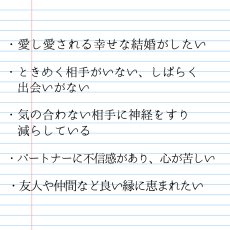 ・愛し愛される幸せな結婚がしたい
・ときめく相手がいない、しばらく
出会いがない
・気の合わない相手に神経をすり
減らしている
・パートナーに不信感があり、心が苦しい
・友人や仲間など良い縁に恵まれたい